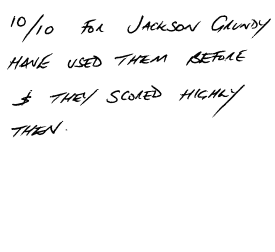 10/10 FOR JACKSON GRUNDY
HAVE USED THEM BEFORE
& THEY SCORED HIGHLY
THEN.